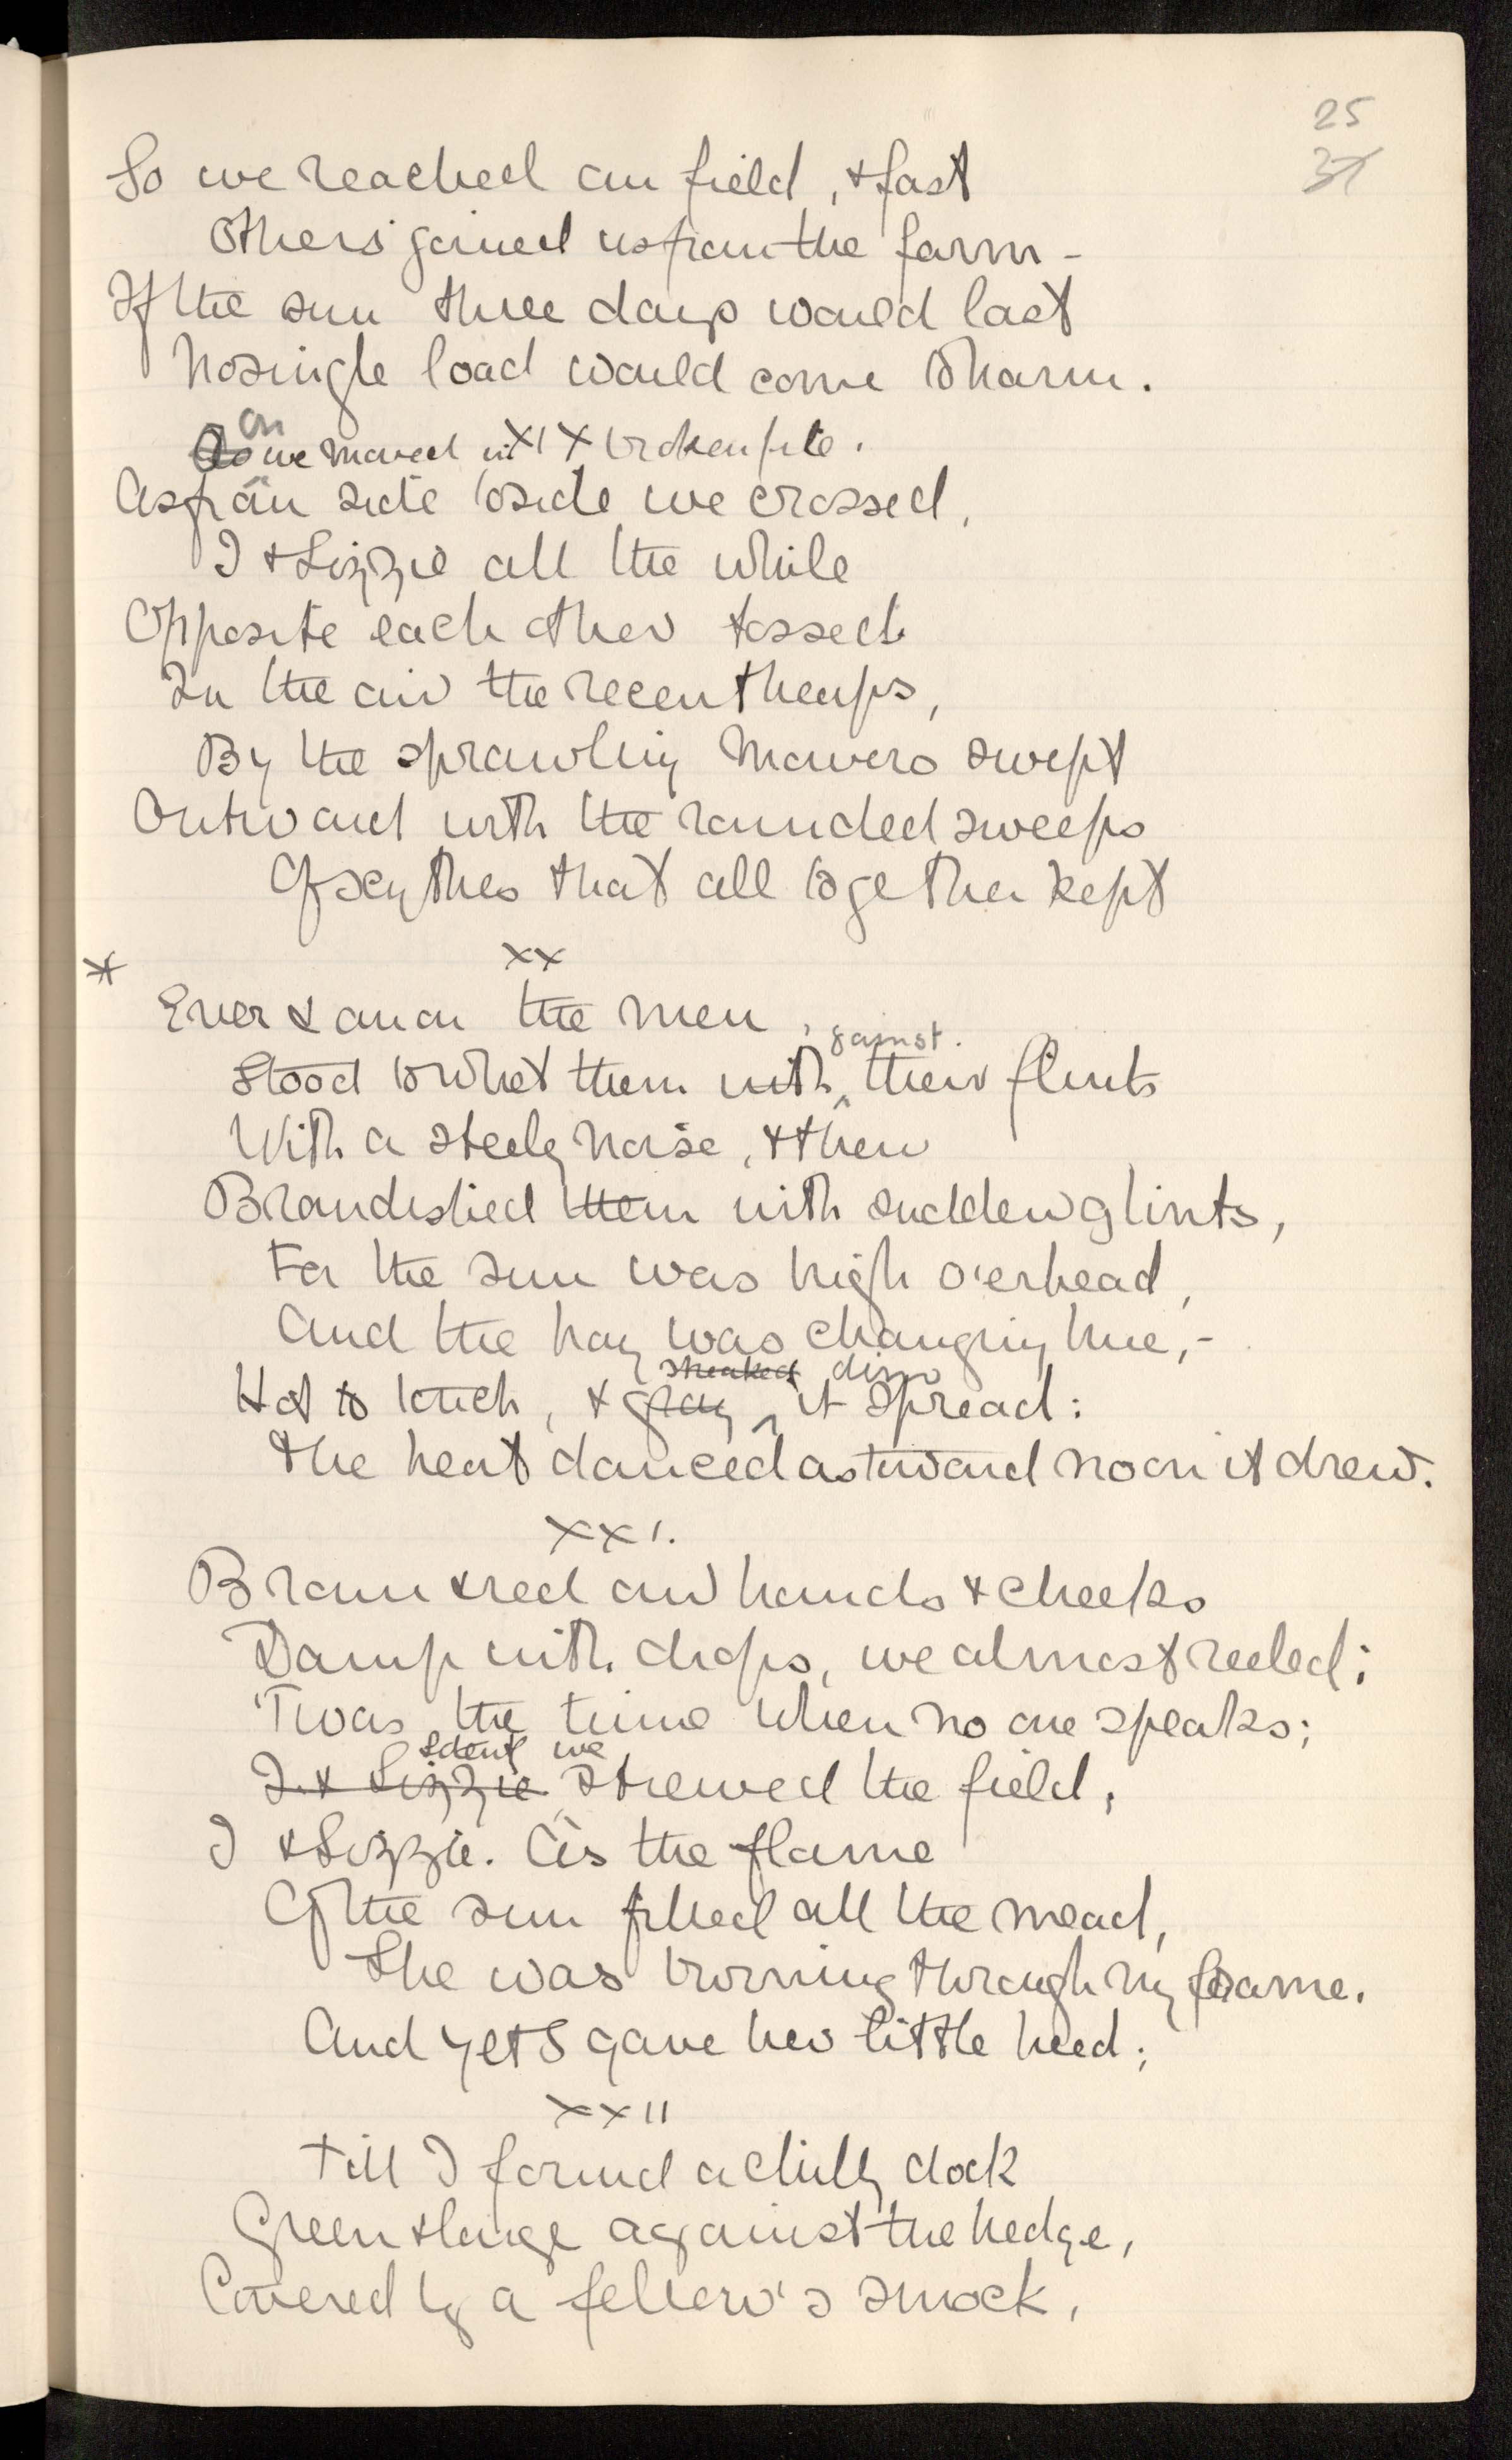 25
31
So we reached our field, & fast
Others joined us from the farm -
If the sun three days would last
No single load would come t'harm.
As on we moved in XIX broken file.
As from side to side we crossed,
I & Lizzie all the while
Opposite each other tossed
In the air the recent heaps,
By the sprawling mowers swept
Outward with the rounded sweeps
Of scythes that all together kept
* XX
Ever & anon the men,
gainst.
Stood to whet them with ^ their flints
With a steely noise, & then
Brandished them with sudden glints,
For the sun was high o'erhead,
And the hay was changing hue, -
streaked dim
Hot to touch, & gray ^ it spread:
The heat danced as toward noon it drew.
XXI.
Brown & red our hands & cheeks
Damp with drops, we almost reeled;
'Twas the time when no one speaks;
silent we
I & Lizzie strewed the field,
I & Lizzie. As the flame
Of the sun filled all the mead,
She was burning through my frame.
And yet I gave her little heed;
XXII
Till I found a chilly dock
Green & large against the hedge,
Covered by a fellow's smock,